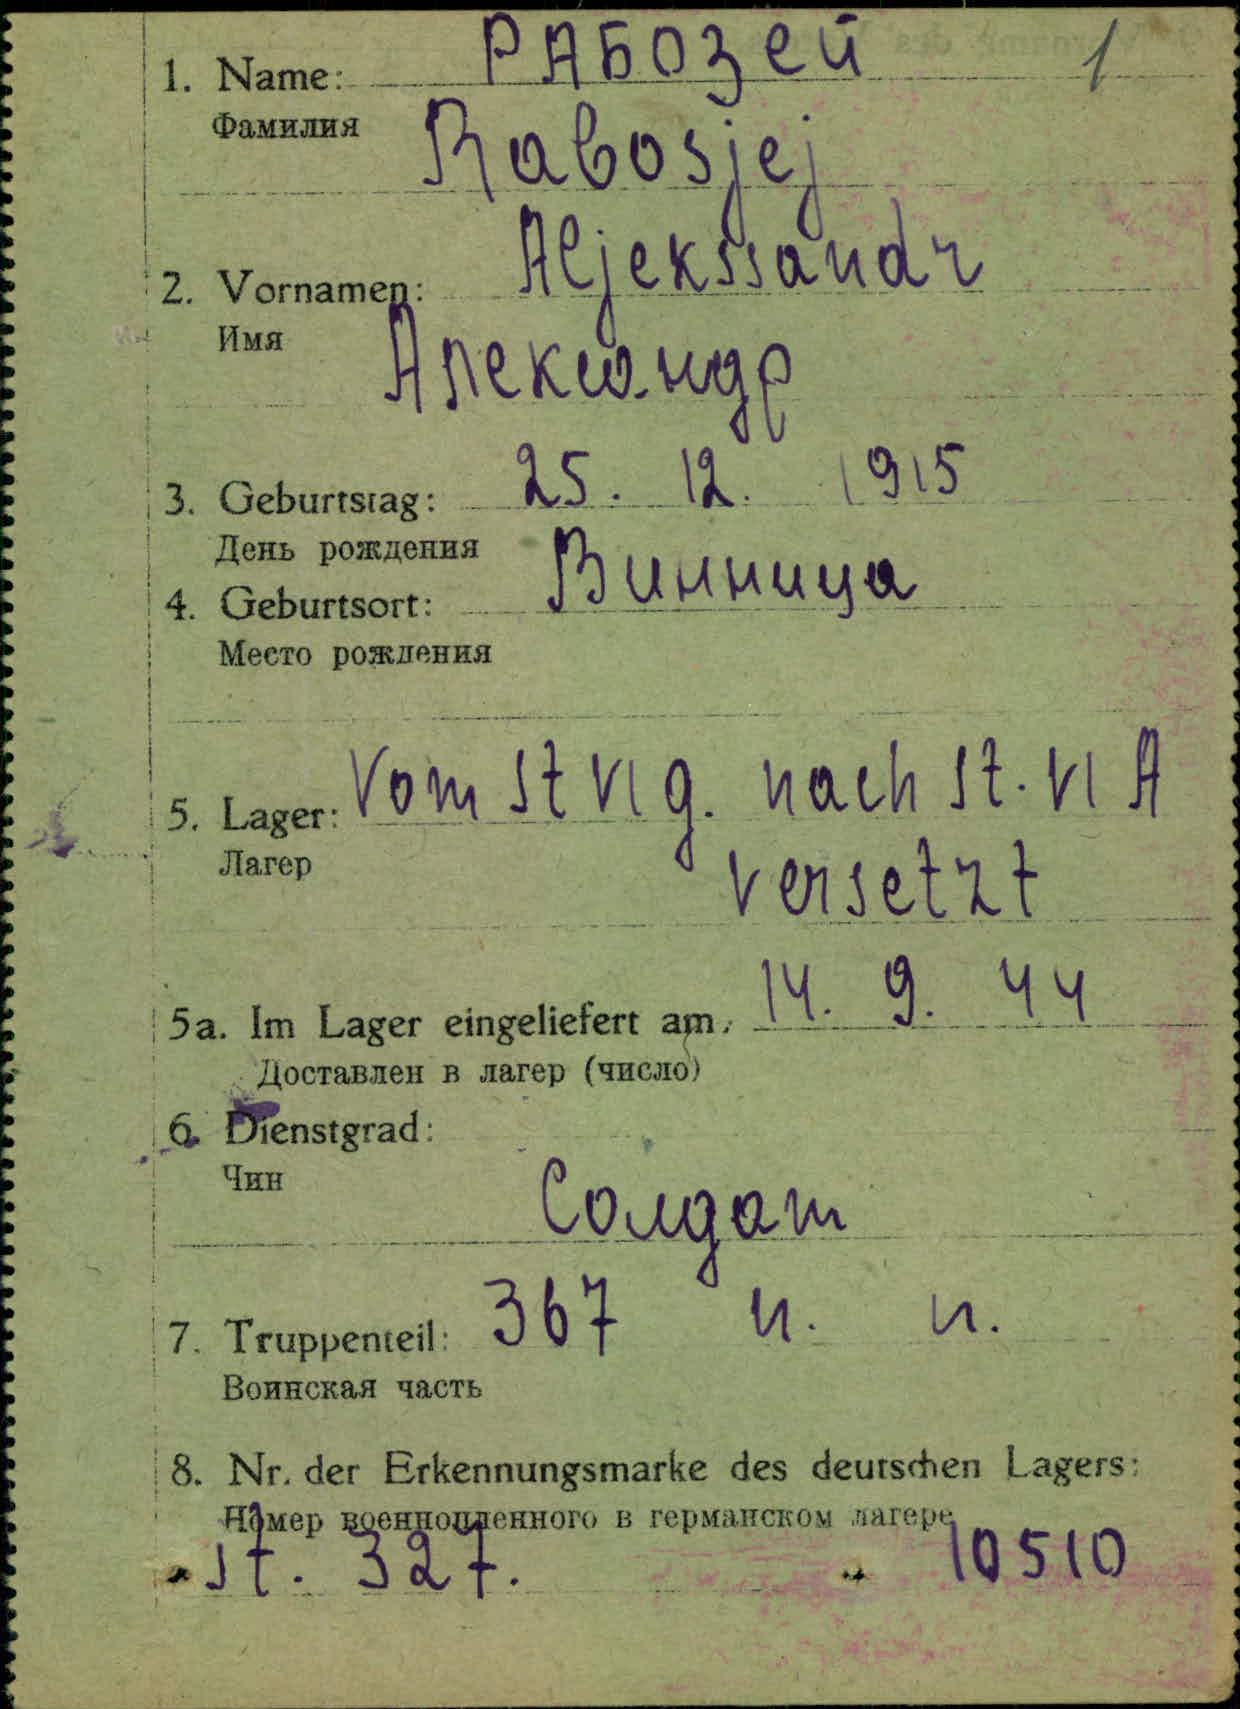 1. Name: РАБОЗЕЙ 1
Фамилия
Rabosjej
Aljekssandr
2. Vornamen:
Имя
Александр
3. Geburtstag: 25. 12. 1915
День рождения
4. Geburtsort: Винница
Место рождения
5. Lager: Vom St VI g. nach St. VI A
Лагер
versetzt
5a. Im Lager eingeliefert am: 14. 9. 44
Доставлен в лагер (число)
6. Dienstgrad:
Чин
Солдат
7. Truppenteil: 367 п. п.
Воинская часть
8. Nr. der Erkennungsmarke des deutschen Lagers:
Номер военнопленного в германском лагере
St. 327. 10510